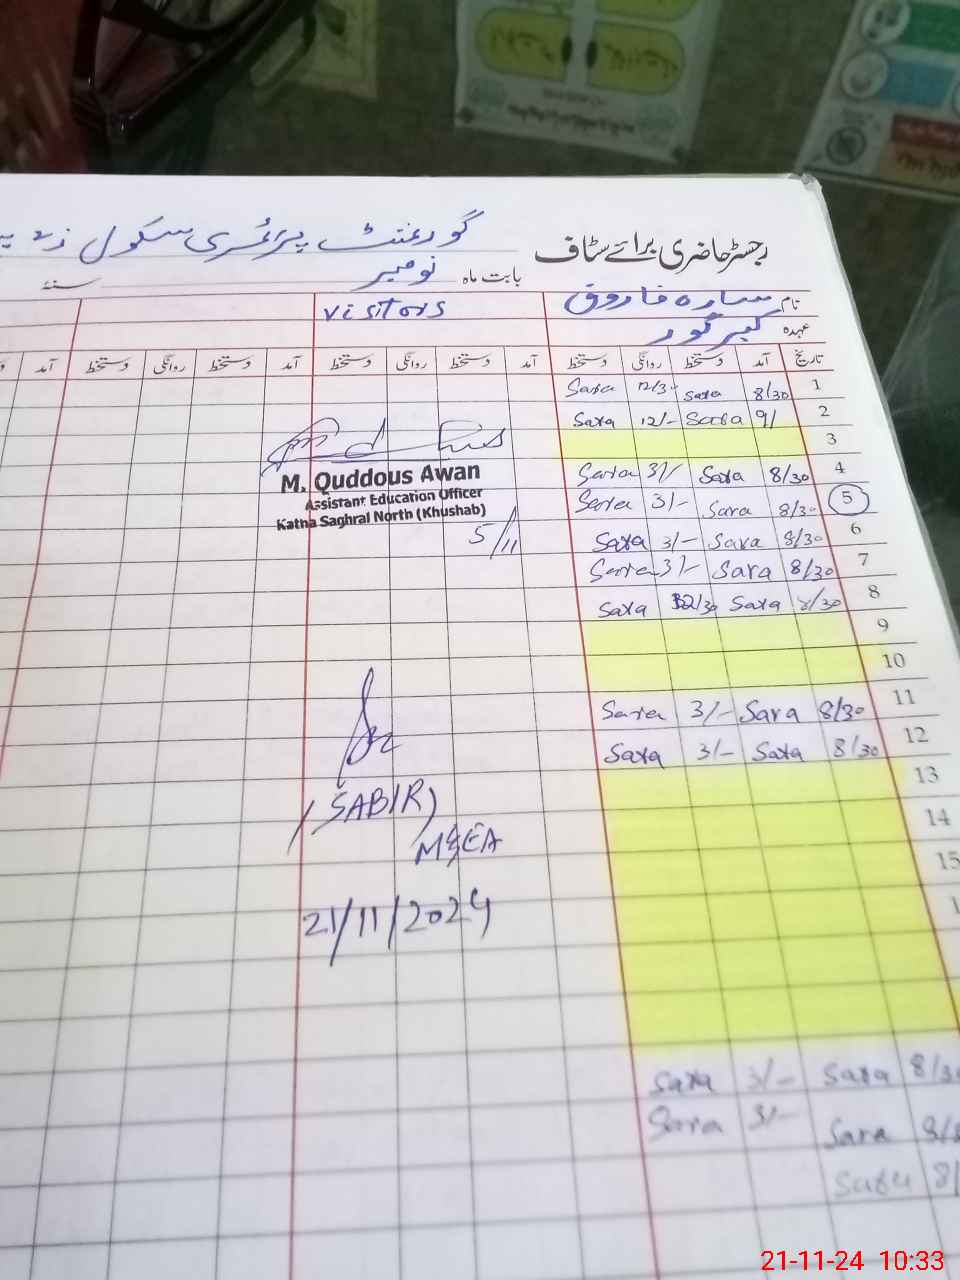 گورنمنٹ پرائمری سکول
رجسٹر حاضری برائے سٹاف
بابت ماہ نومبر سنہ
نام سارہ فاروق
visitors
عہدہ کیئر گور
تاریخ آمد دستخط روانگی دستخط آمد دستخط روانگی دستخط آمد دستخط روانگی دستخط آمد
1 8/30 Sara 12/30 Sara
2 9/ Sara 12/- Sara
3
4 8/30 Sara 3/- Sara
5 8/30 Sara 3/- Sara
6 8/30 Sara 3/- Sara
7 8/30 Sara 3/- Sara
8 8/30 Sara 12/30 Sara
9
10
11 8/30 Sara 3/- Sara
12 8/30 Sara 3/- Sara
13
14
15
8/30 Sara 3/- Sara
8/3 Sara 3/- Sara
8/ Sara
M. Quddous Awan
Assistant Education Officer
Katha Saghral North (Khushab)
5/11
(SABIR)
M&EA
21/11/2024
21-11-24 10:33